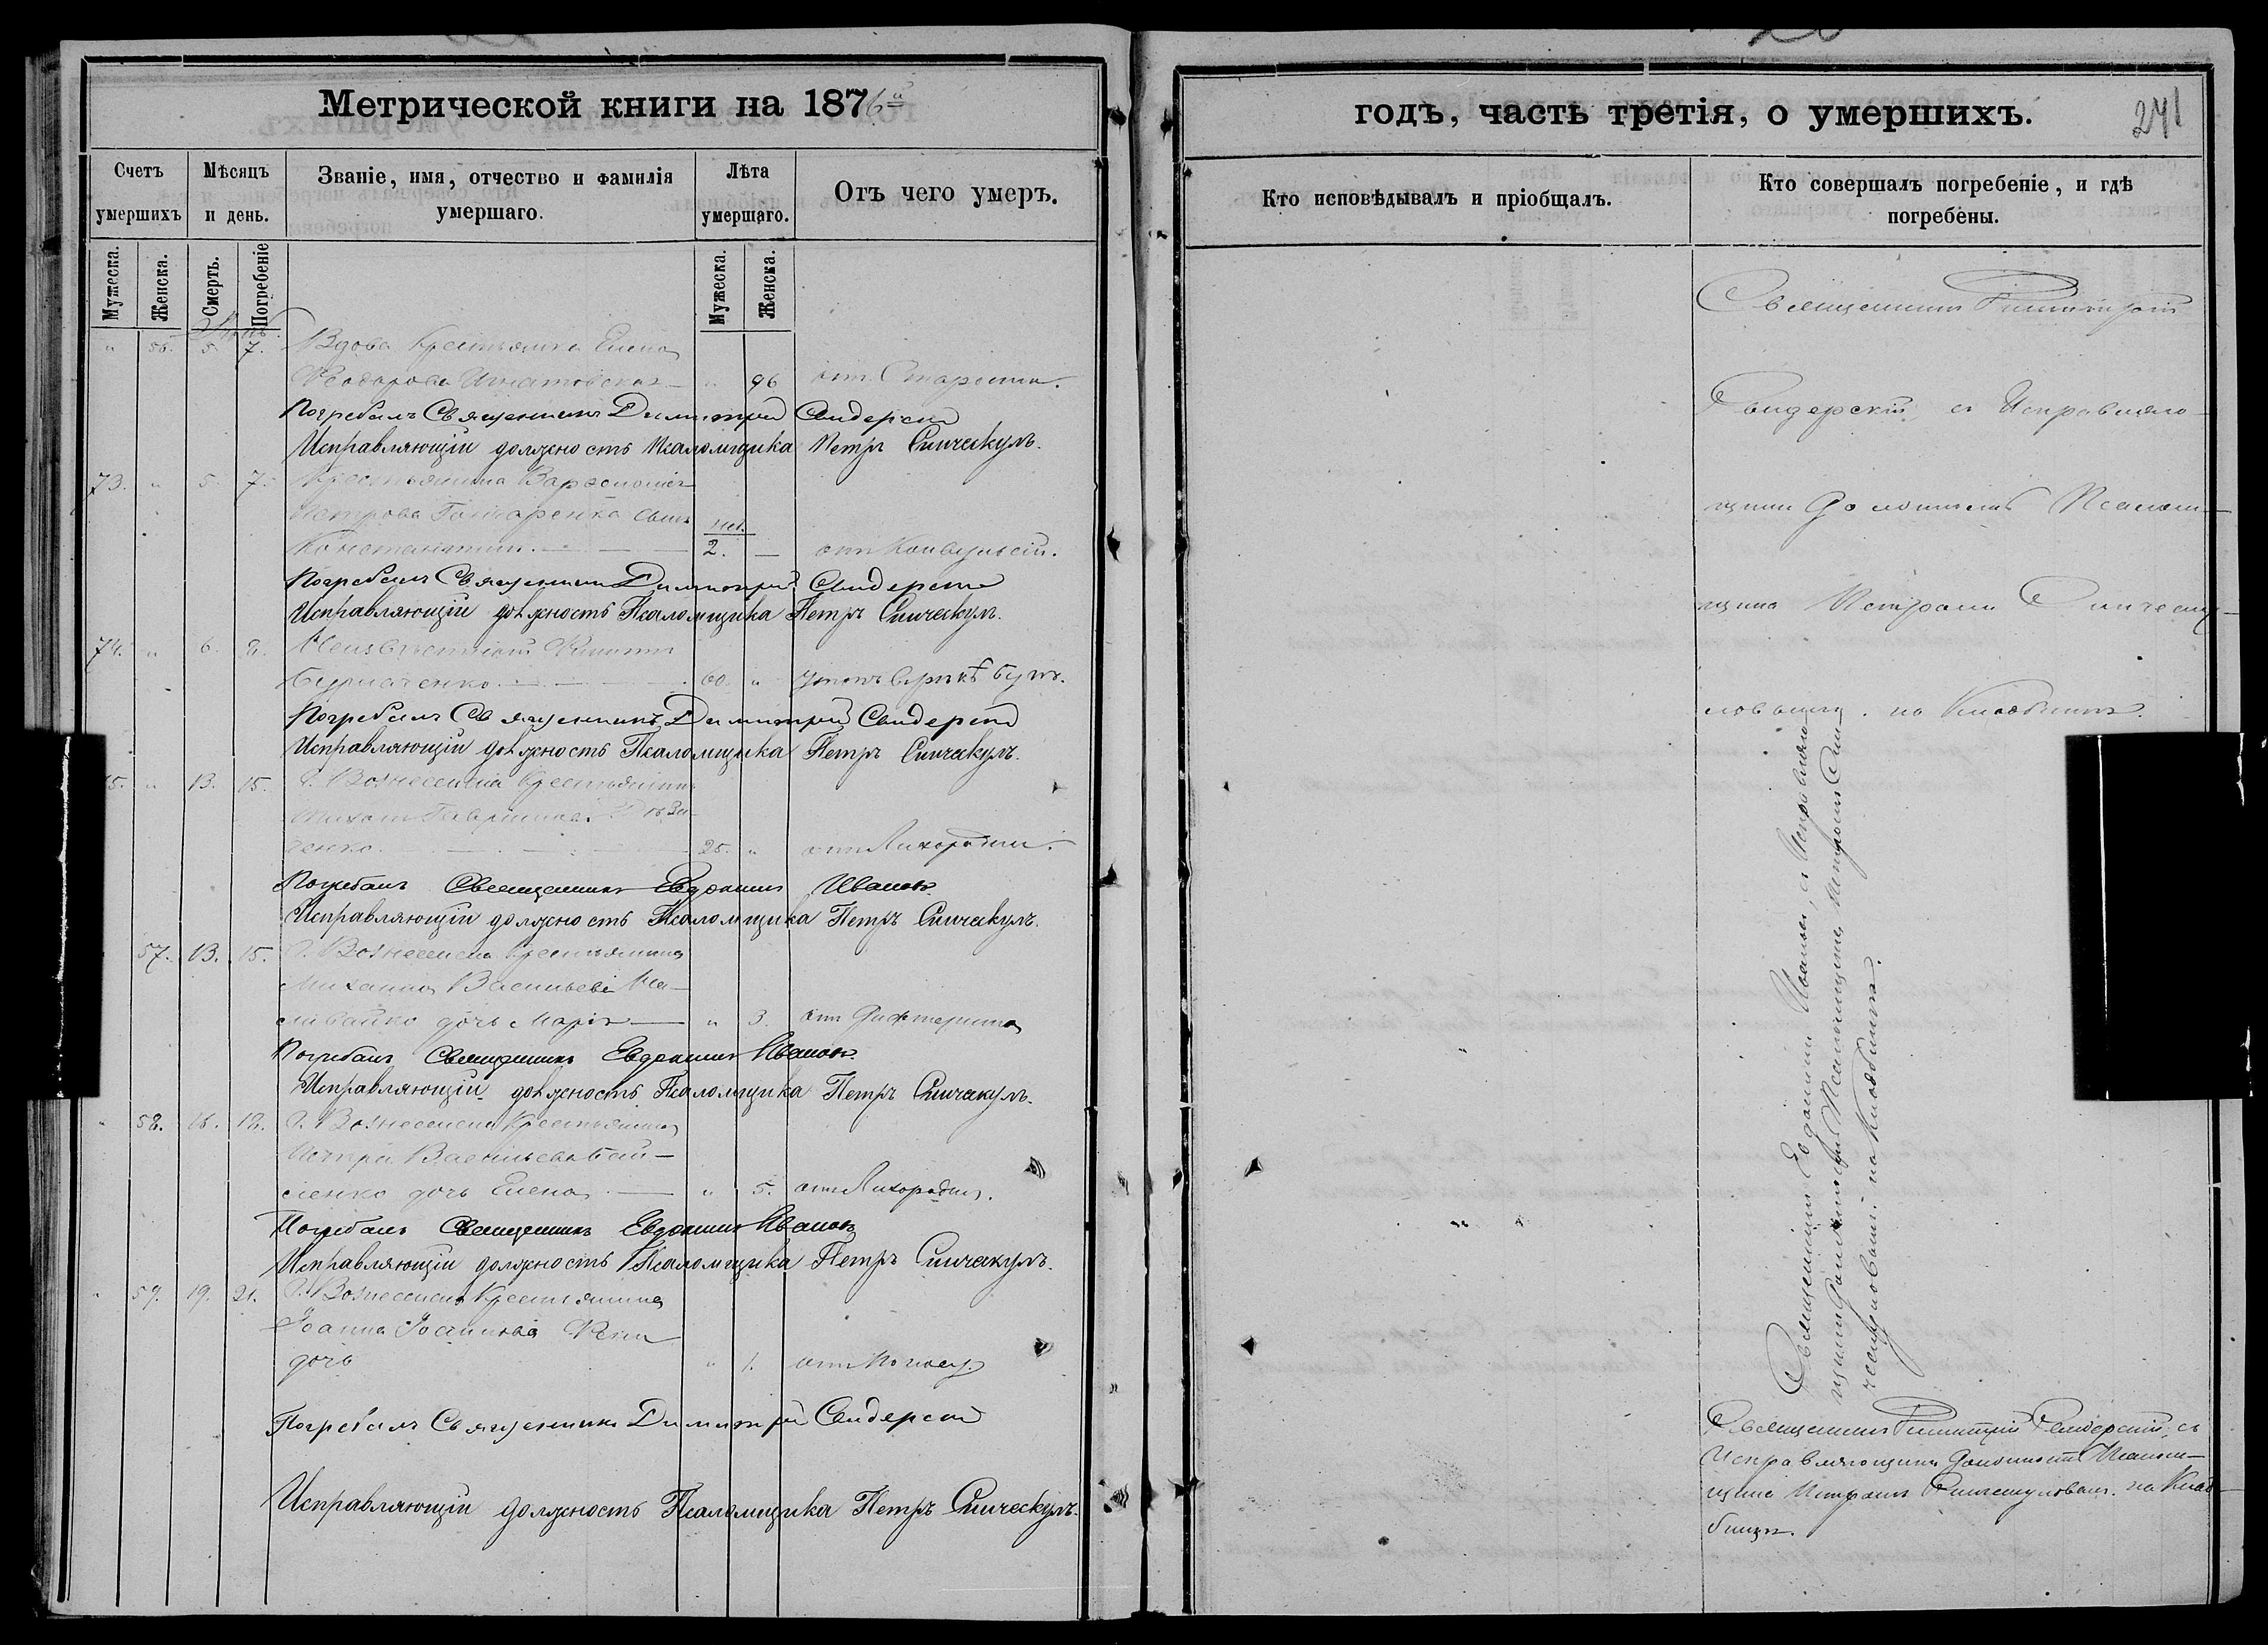 Метрической книги на 1876й
Счетъ умершихъ
Мѣсяцъ и день.
Званіе, имя, отчество и фамилія умершаго.
Лѣта умершаго.
Отъ чего умеръ.
Мужеска.
Женска.
Смерть.
Погребеніе
Мужеска.
Женска.
" 56. 5. 7. Вдова Крестьянка Елена
Ѳеодорова — " 96 отъ Старости.
Погребалъ Священникъ Димитрій Свидерскій
Исправляющій должность Псаломщика Петръ Синчекулъ.
73. " 5. 7. Крестьянина
Петрова сынъ
Константинъ. — 2. — отъ Конвульсій.
Погребалъ Священникъ Димитрій Свидерскій
Исправляющій должность Псаломщика Петръ Синчекулъ.
74. " 6. 8.
60. "
Погребалъ Священникъ Димитрій Свидерскій
Исправляющій должность Псаломщика Петръ Синчекулъ.
75. " 13. 15. г. Вознесенска Крестьянинъ
Гавриловъ
ченко. 25. " отъ Лихорадки.
Погребалъ Священникъ Евдокимъ Ивановъ
Исправляющій должность Псаломщика Петръ Синчекулъ.
57. 13. 15. г. Вознесенска Крестьянина
Михаила Васильева На-
ливайко дочь Марія — " 3. отъ Дифтерита
Погребалъ Священникъ Евдокимъ Ивановъ
Исправляющій должность Псаломщика Петръ Синчекулъ.
" 58. 16. 18. г. Вознесенска Крестьянина
Петра Васильева
сленко дочь Елена. — " 5. отъ Лихорадки.
Погребалъ Священникъ Евдокимъ Ивановъ
Исправляющій должность Псаломщика Петръ Синчекулъ.
" 59. 19. 21. г. Вознесенска Крестьянина
Іоанна Іоаннова
дочь " 1. отъ Поносу
Погребалъ Священникъ Димитрій Свидерскій
Исправляющій должность Псаломщика Петръ Синчекулъ.
годъ, часть третія, о умершихъ.
241
Кто исповѣдывалъ и пріобщалъ.
Кто совершалъ погребеніе, и гдѣ погребены.
Священникъ Димитрій
Свидерскій съ Исправляю-
щимъ Должность Псалом-
щика Петромъ Синчеку-
ловымъ. на Кладбищѣ.
Священникъ Евдокимъ Ивановъ, съ Исправляю-
щимъ Должность Псаломщика Петромъ Син-
чекуловымъ. на Кладбищѣ.
Священникъ Димитрій Свидерскій, съ
Исправляющимъ Должность Псалом-
щика Петромъ Синчекуловымъ. на Клад-
бищѣ.